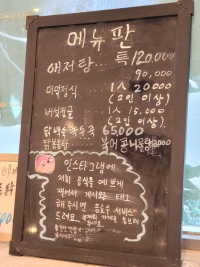 메뉴판
애저탕... 특 120,000
90,000
더덕정식 1人 20000
(2인 이상)
버섯전골 1人 15,000
(2인 이상)
닭백숙 죽 65,000
닭볶음탕
인스타그램에
저희 음식을 예쁘게
찍어서 게시와 태그
해주시면 음료수 서비스
드려요